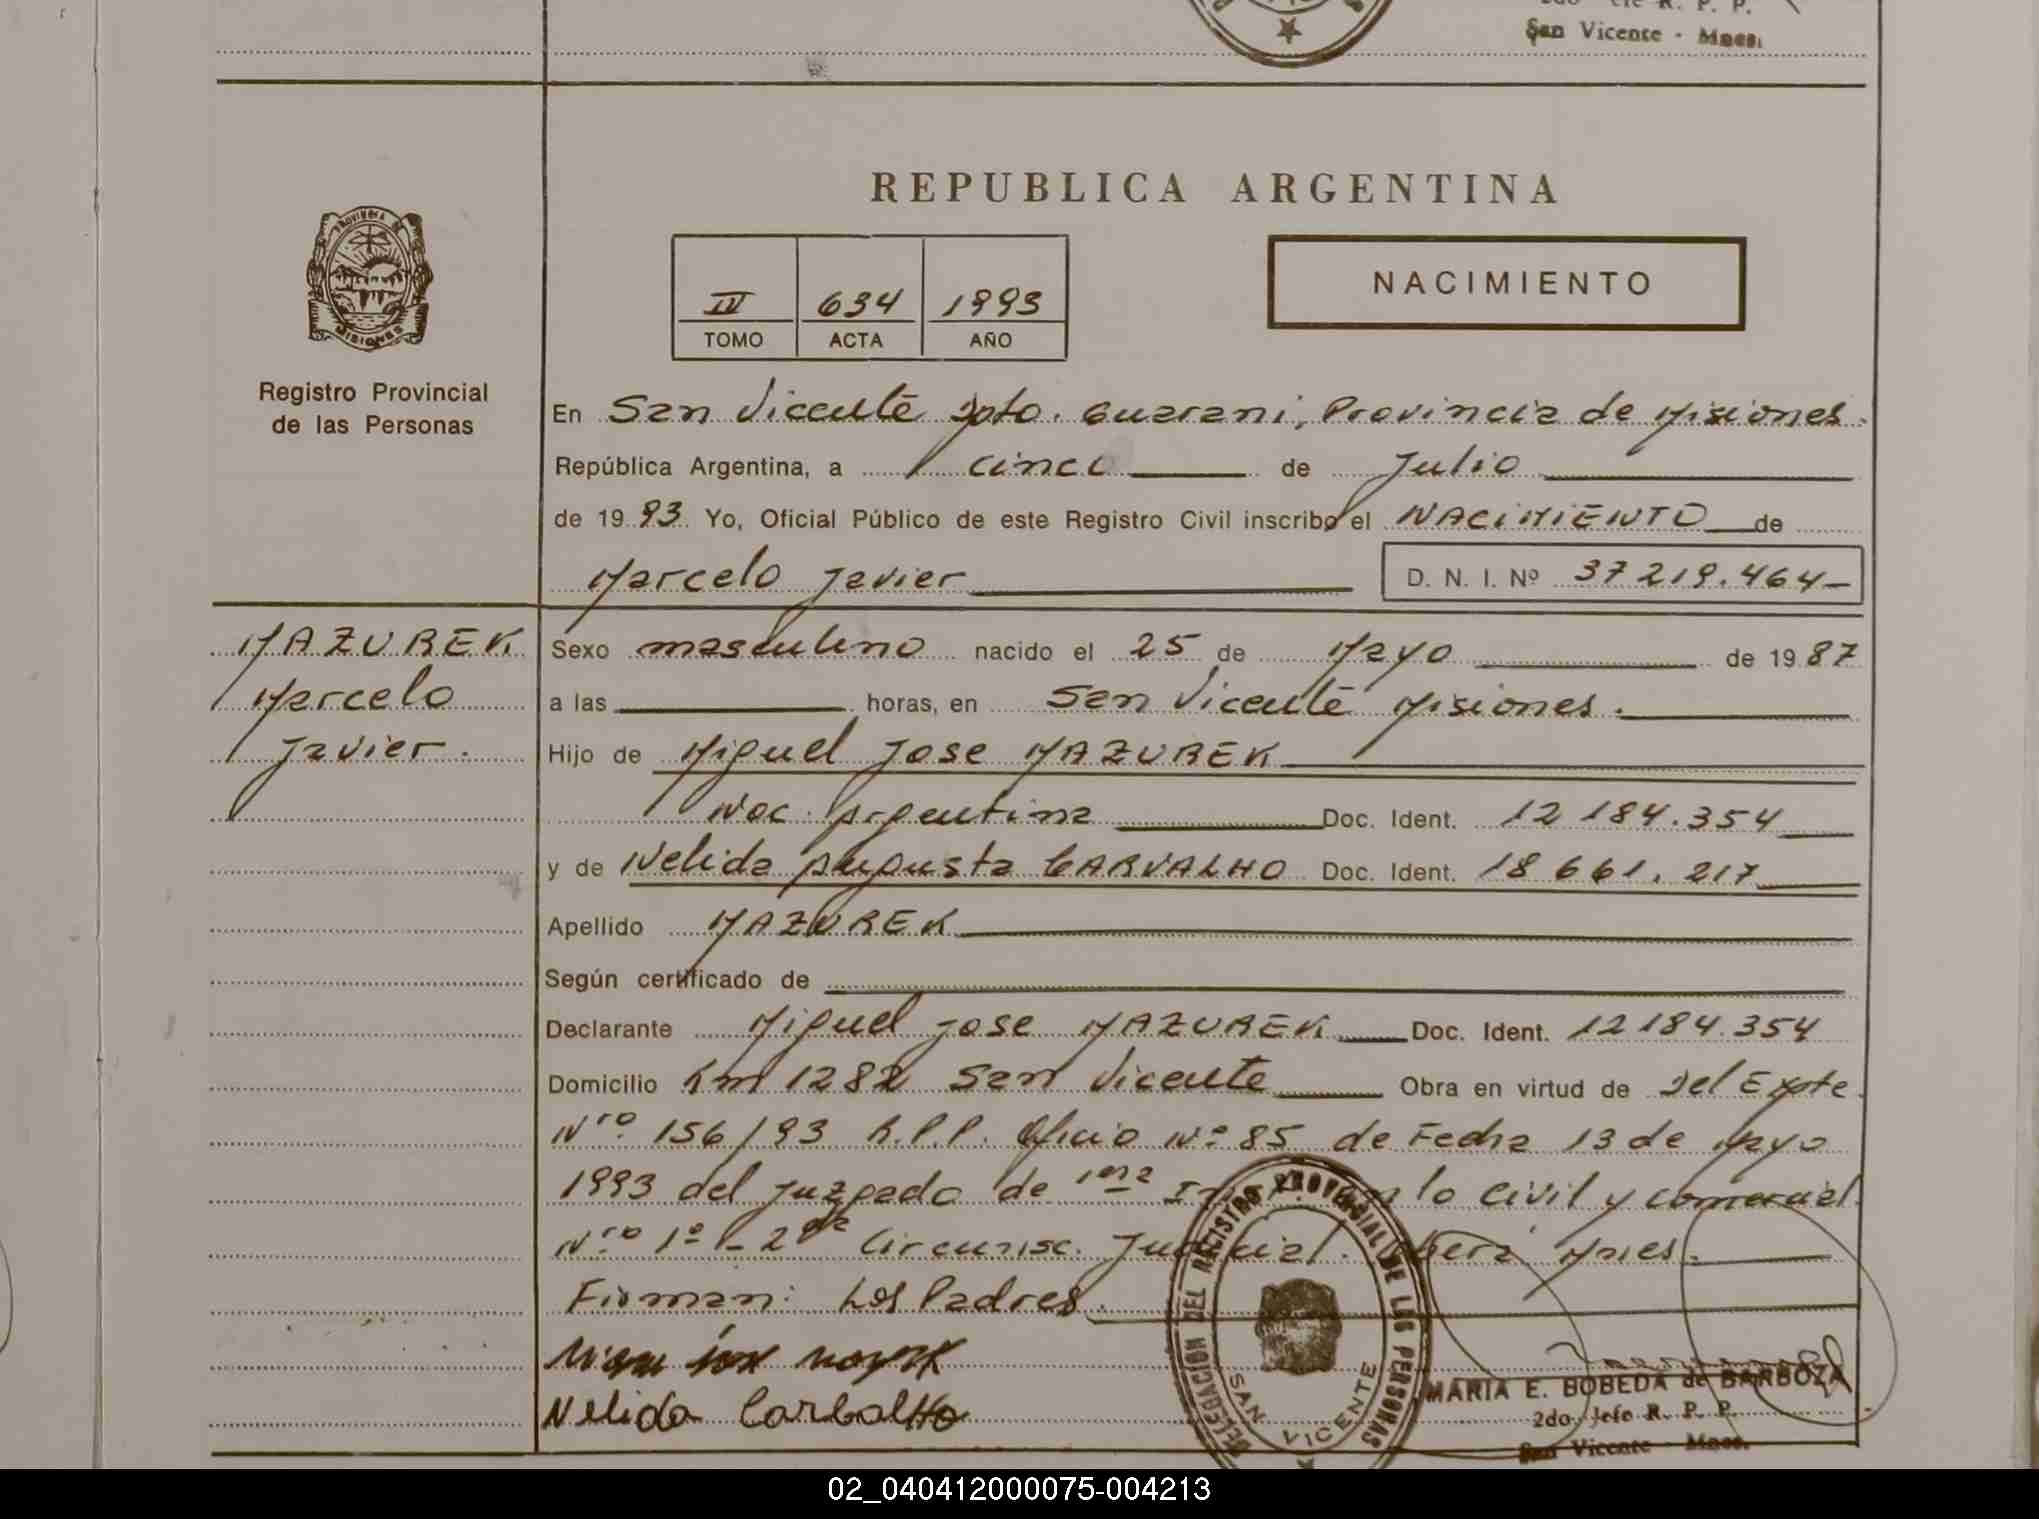 San Vicente - Mnes.
REPUBLICA ARGENTINA
PROVINCIA DE
MISIONES
Registro Provincial
de las Personas
NACIMIENTO
IV 634 1993
TOMO ACTA AÑO
En San Vicente Dpto. Guarani, Provincia de Misiones.
República Argentina, a cinco de Julio
de 1993. Yo, Oficial Público de este Registro Civil inscribo el NACIMIENTO de
Marcelo Javier D. N. I. Nº 37 219.464-
MAZUREK
Marcelo
Javier.
Sexo masculino nacido el 25 de Mayo de 1987
a las horas, en San Vicente Misiones.
Hijo de Miguel Jose MAZUREK
Nac. Argentina Doc. Ident. 12 184.354
y de Nelida Augusta CARVALHO Doc. Ident. 18 661.217
Apellido MAZUREK
Según certificado de
Declarante Miguel Jose MAZUREK Doc. Ident. 12184.354
Domicilio Km 1282 San Vicente Obra en virtud de Del Expte
Nro. 156/93 R.P.P. Oficio Nº 85 de Fecha 13 de Mayo
1993 del Juzgado de 1era en lo Civil y comercial.
Nro 1º - 2da Circunsc. Judicial. Mnes.
Firman: Los Padres.
Nelida Carbalho
DELEGACION DEL REGISTRO PROVINCIAL DE LAS PERSONAS
SAN VICENTE
MARIA E. BOBEDA de BARBOZA
2do. Jefe R. P. P.
San Vicente - Mnes.
02_040412000075-004213